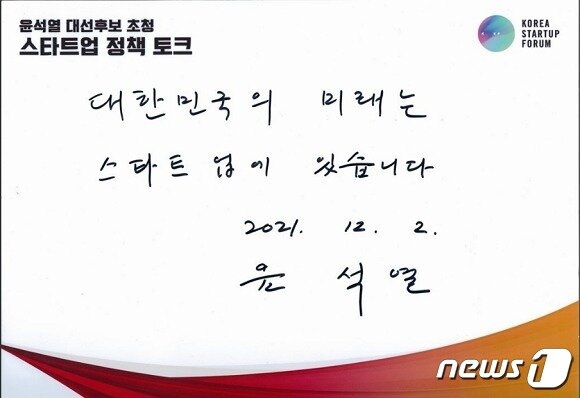 윤석열 대선후보 초청
스타트업 정책 토크
KOREA
STARTUP
FORUM
대한민국의 미래는
스타트업에 있습니다
2021. 12. 2.
윤 석 열
news1